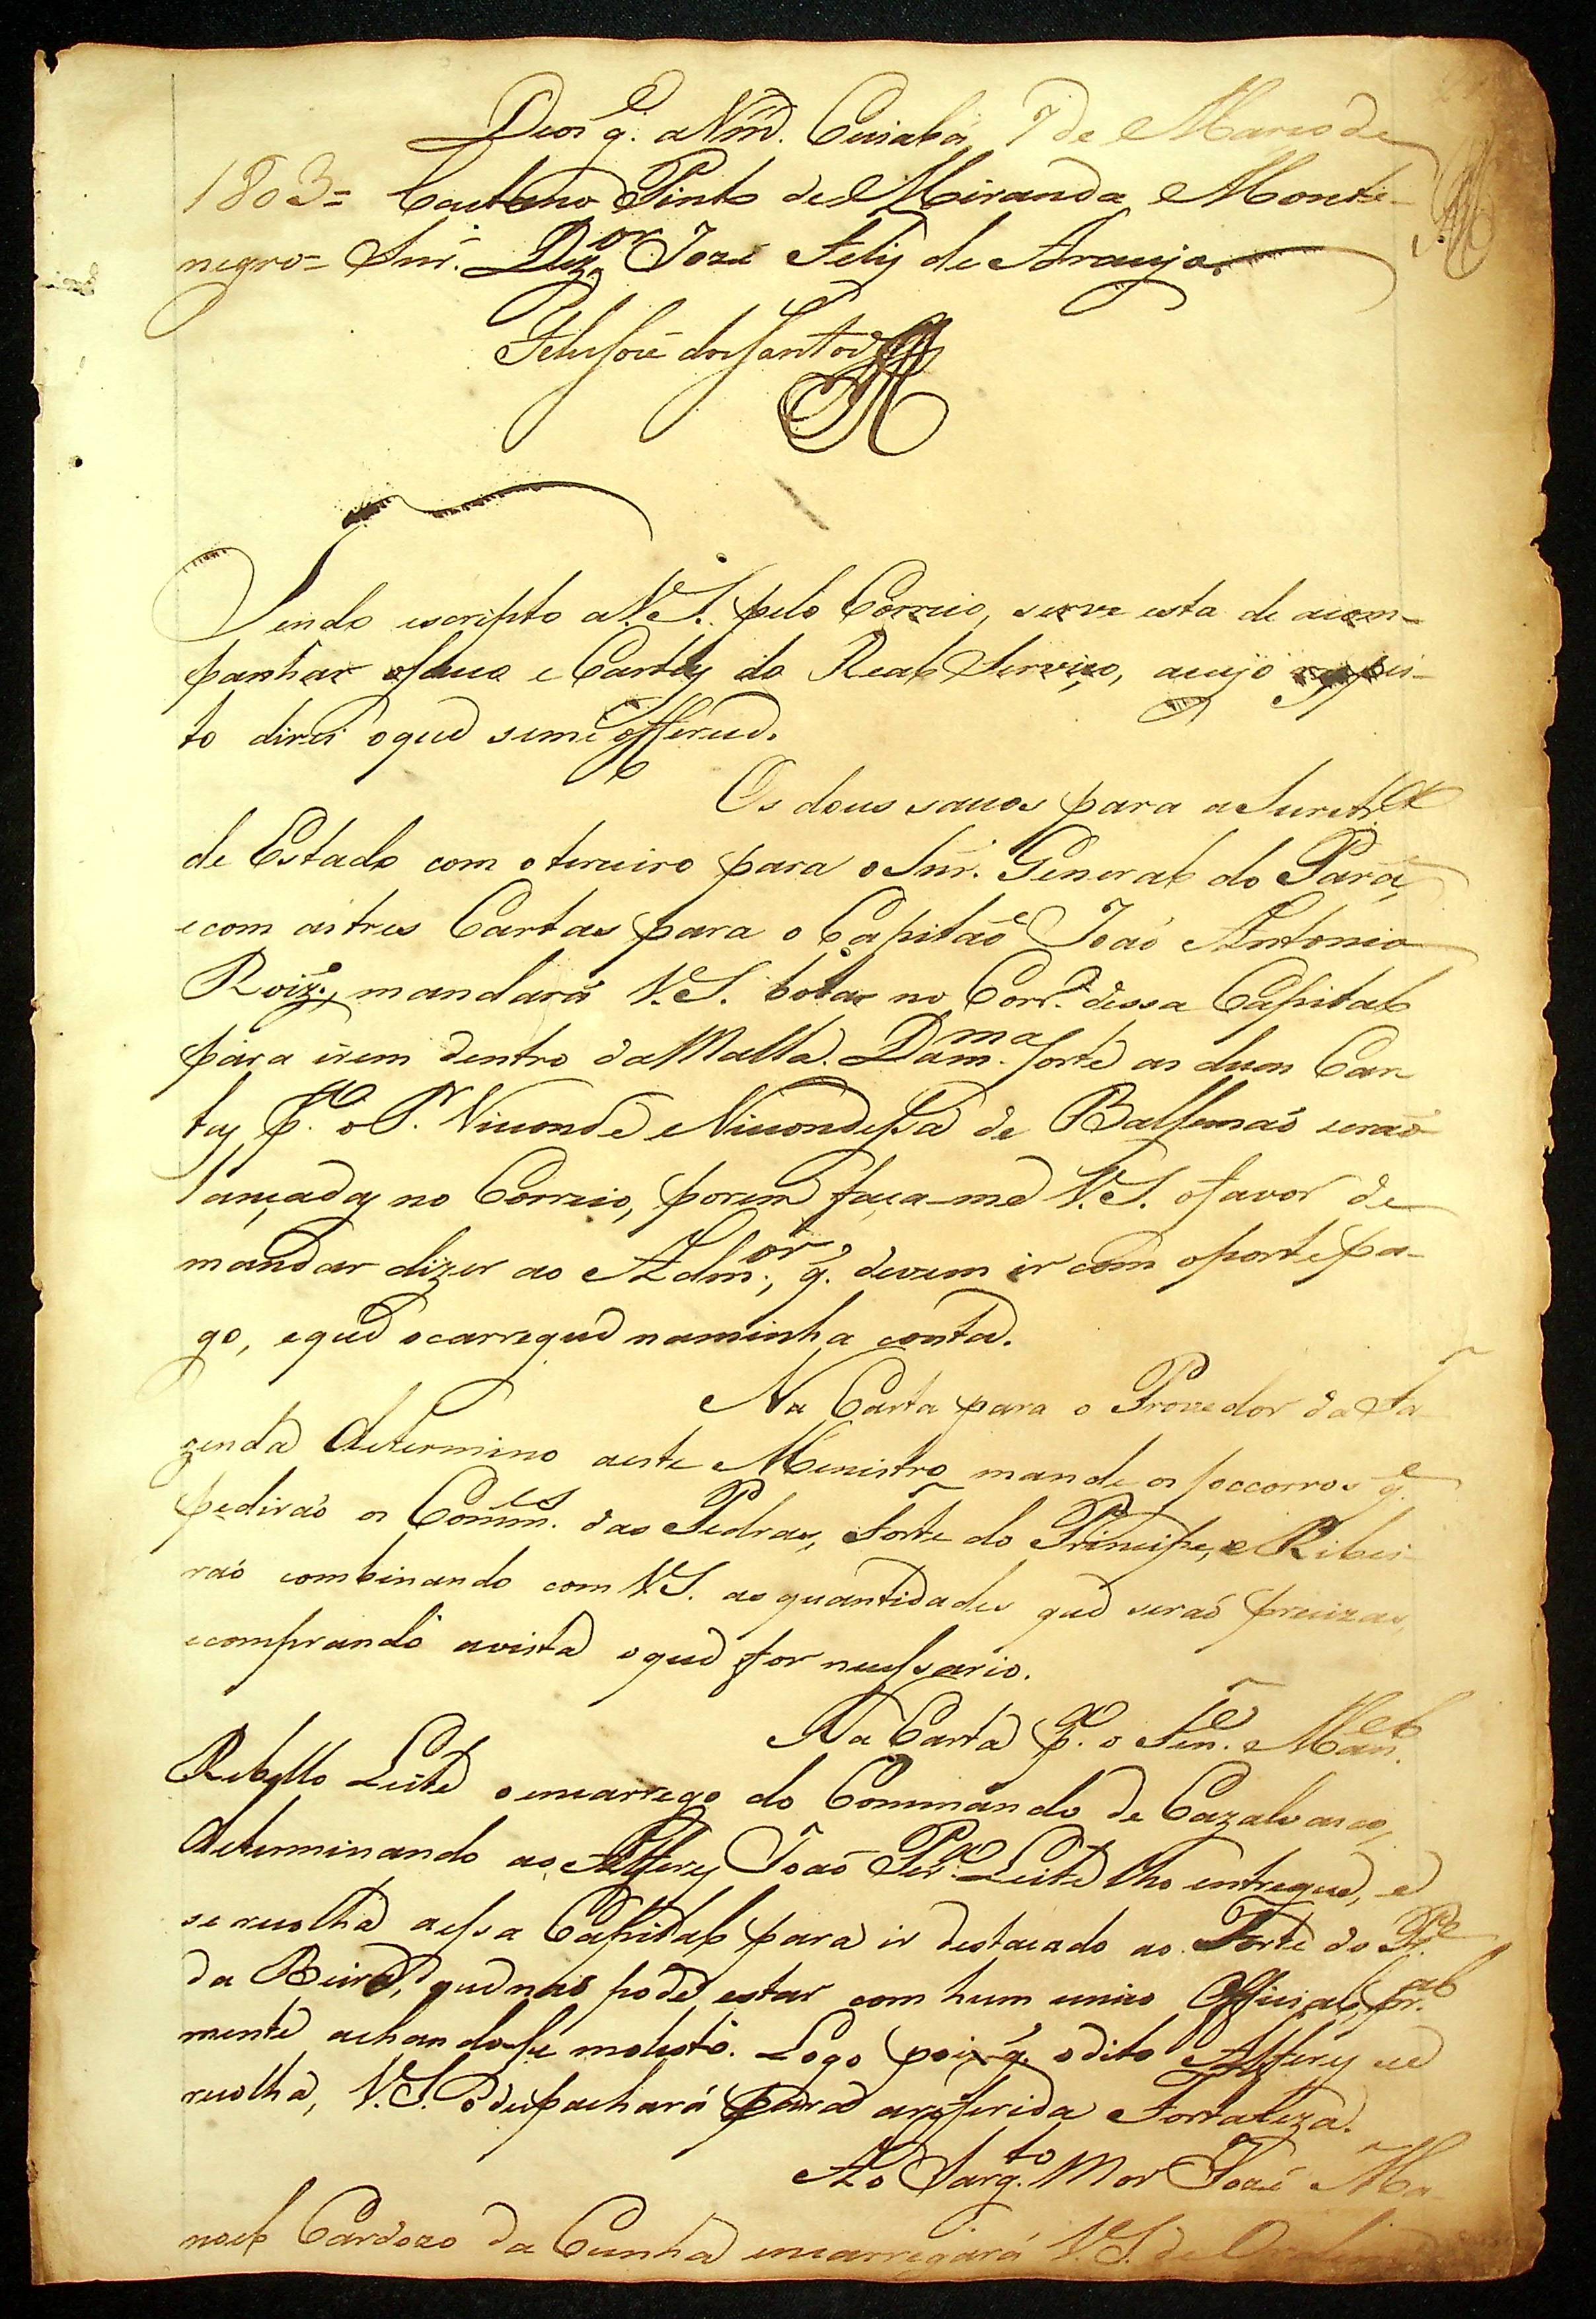 Deos g.e a Vm.ce Cuiabá 7 de Março de
1803 = Caetano Pinto de Miranda Monte-
negro = Snr. Dez.or Jozé Felis de Araujo.
dos Santos
Tendo escripto a V.S. pelo Correio, serve esta de acom-
panhar o sacco e Cartas do Real Serviço, acujo respei-
to direi oque seme offerece.
Os dous saccos para a Secretr.a
de Estado com o terceiro para o Snr. General do Pará,
e com as tres Cartas para o Capitaõ Joaõ Antonio
Roiz', mandará V.S. botar no Corr.o dessa Capital
para irem dentro da Malla. Dam.ma sorte as duas Car
tas p.a o S.r Visconde e Viscondessa de Balsemaõ seraõ
lançadas no Correio, porem faça-me V.S. o favor de
mandar dizer ao Adm.or, q.' devem ir com oporte pa-
go, eque ocarregue naminha conta.
Na Carta para o Provedor da Fa-
zenda determino aeste Menistro mande os soccorros q.e
pediraõ os Comm.es das Pedras, Forte do Principe, e Ribei-
raõ combinando com V.S. as quantidades que seraõ precizas,
ecomprando avista oque for necessario.
Na Carta p.a o Ten.e Man.el
Rebello Leite o encarrego do Commando de Cazalvasco,
determinando ao Alferes Joaõ Per.a Leite lho entregue, e
se recolha aessa Capital para ir destacado ao Forte do Pr.e
da Beira, que naõ pode estar com hum unico Official, pr.al
mente achandose molesto. Logo pois q.' odito Alferes se
recolha, V.S. o despachará para areferida Fortaleza.
Ao Sarg.to Mor Jozé Ma-
noel Cardozo da Cunha encarregará V.S. de